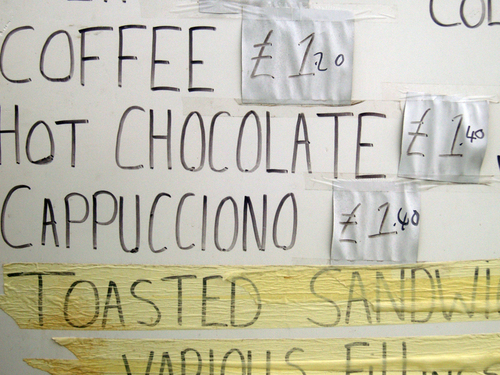 COFFEE £1.20
HOT CHOCOLATE £1.40
CAPPUCCIONO £1.40
TOASTED SANDWI
VARIOUS FILLINGS